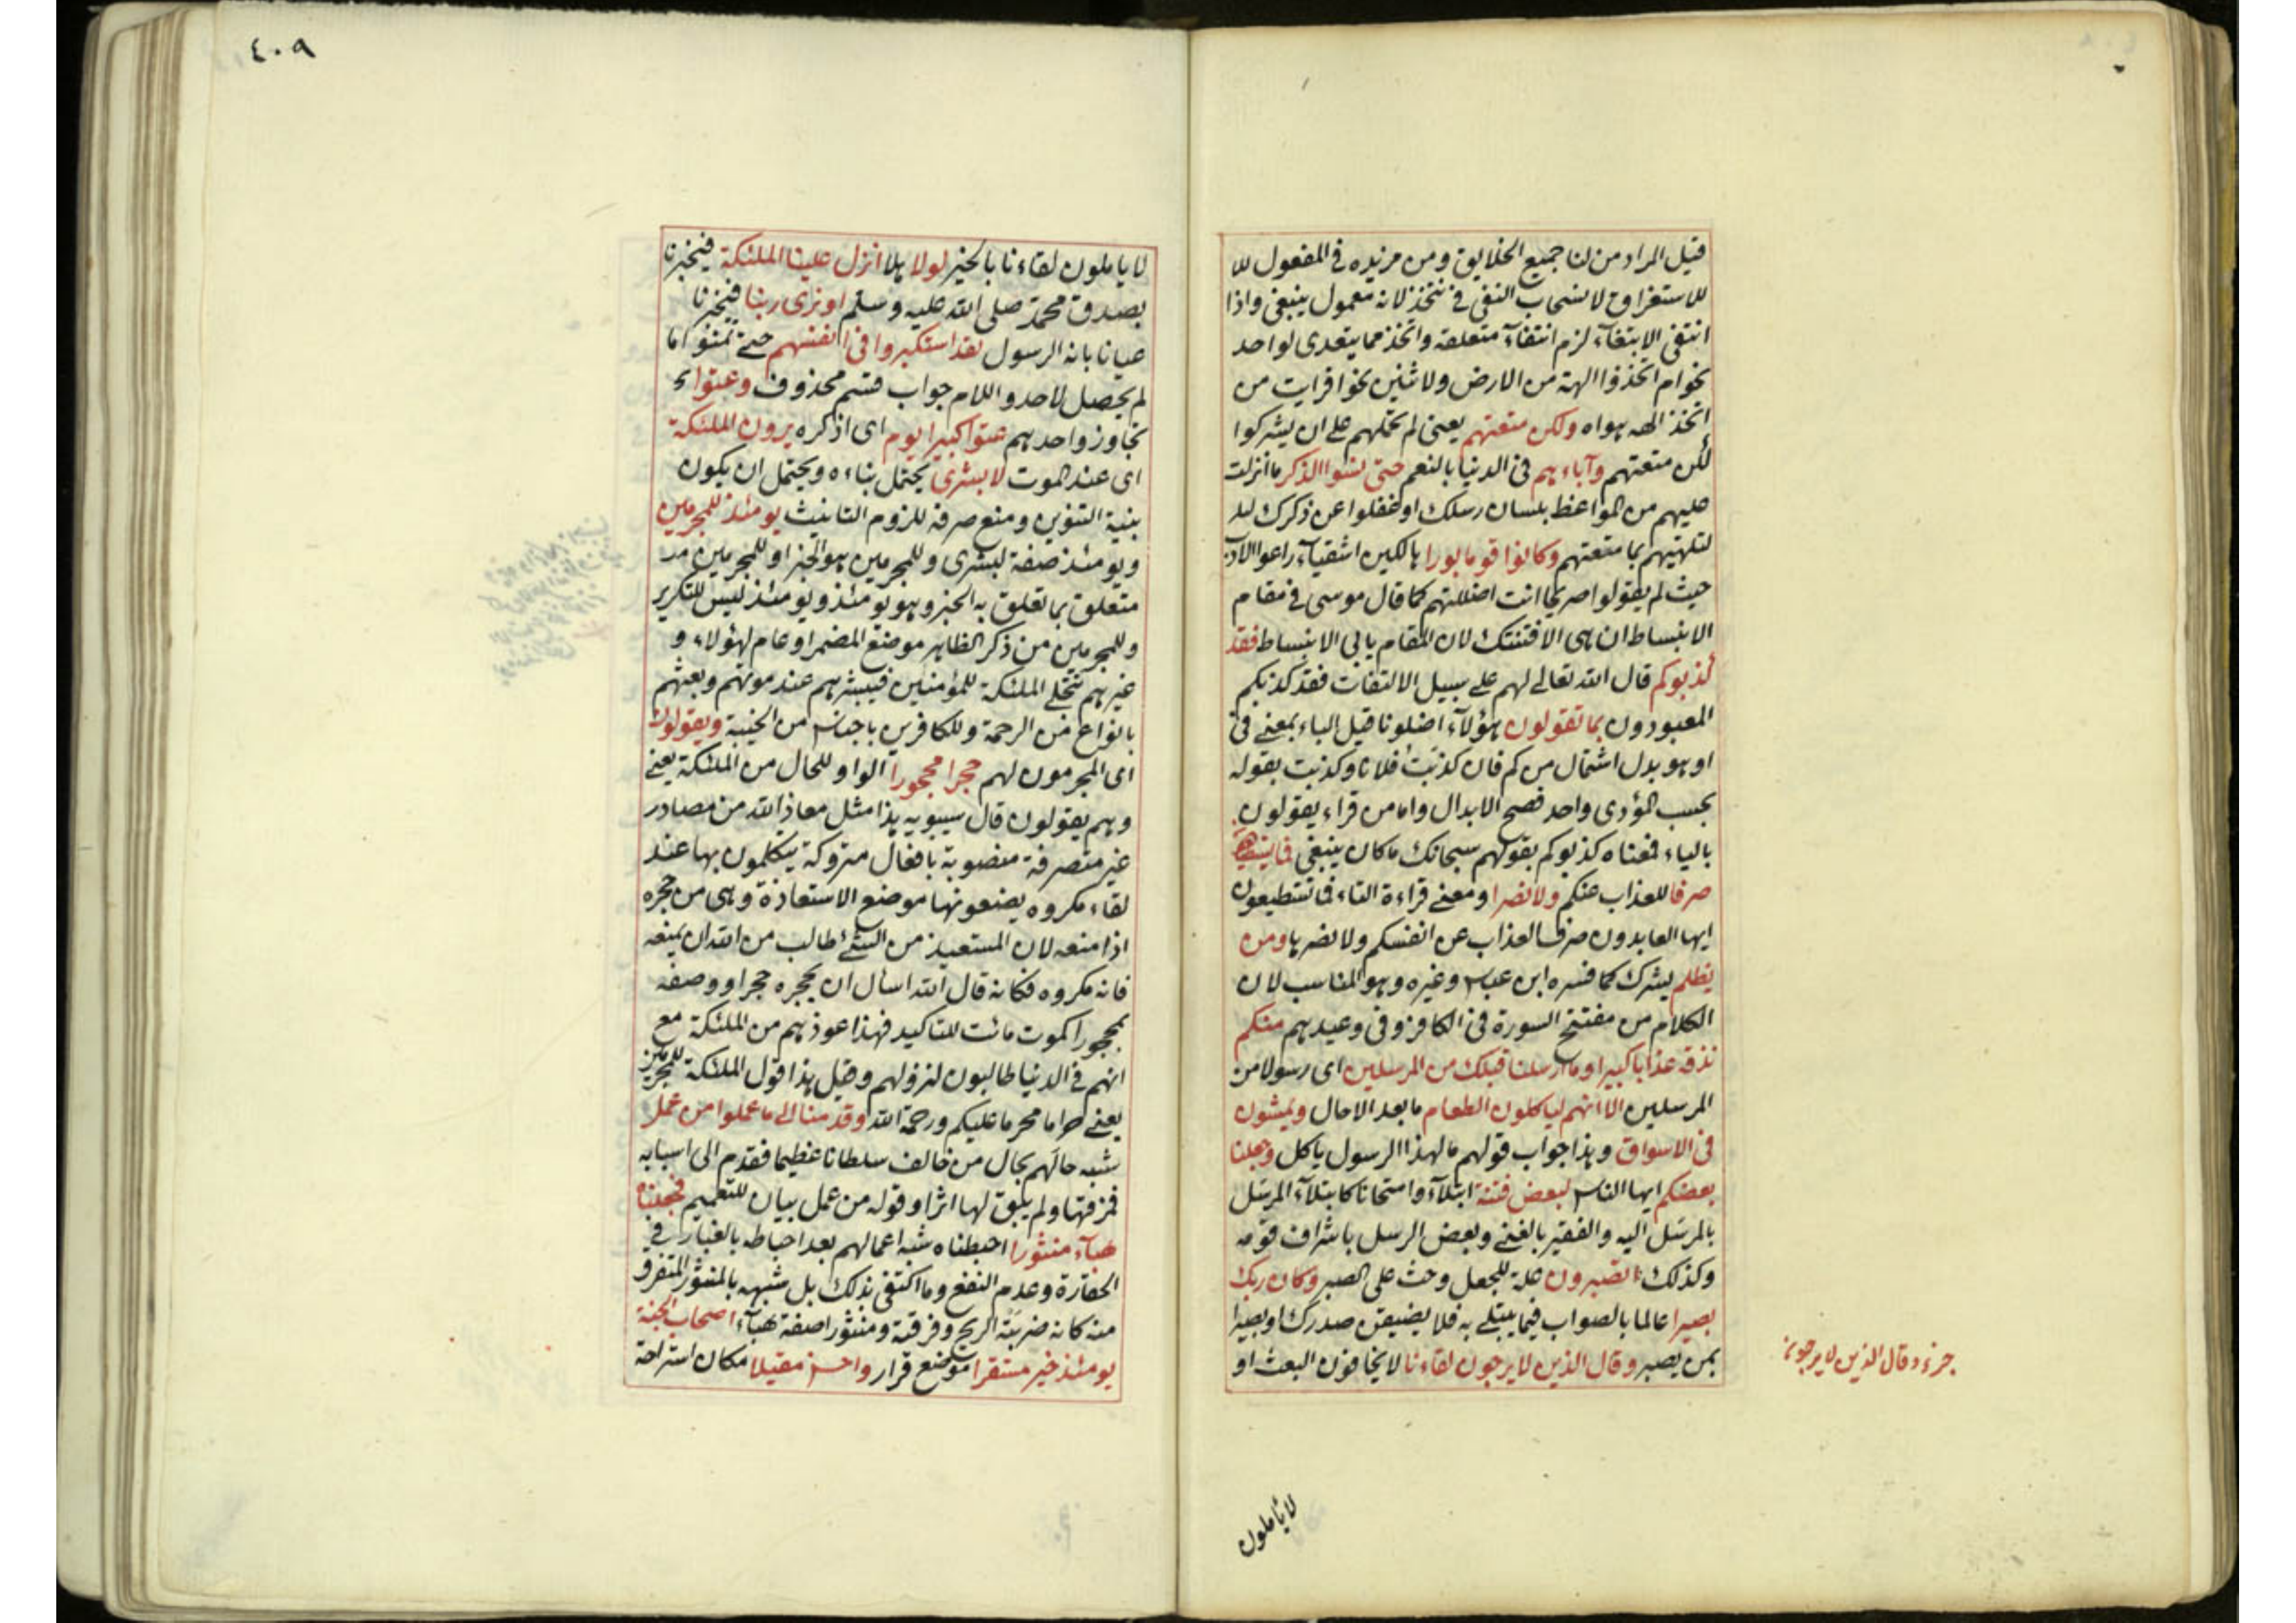 قيل المراد من لنا جميع الخلايق ومن مزيده في المفعول للا
للاستغراق لانسحاب النفي في نتخذ لانه معمول ينبغي واذا
انتفى الابتغاء لزم انتفاء متعلقه واتخذ مما يتعدى لواحد
نحو ام اتخذوا الهة من الارض ولاثنين نحو افرايت من
اتخذ الهه هواه ولكن متعتهم يعني لم نحملهم على ان يشركوا
لكن متعتهم وآباءهم في الدنيا بالنعم حتى نسوا الذكر ما انزلت
عليهم من المواعظ بلسان رسلك او غفلوا عن ذكرك لك
لتلهيهم بما متعتهم وكانوا قوما بورا هالكين اشقياء راعوا الادب
حيث لم يقولوا صريحا انت اضللتهم كما قال موسى في مقام
الانبساط ان هي الا فتنتك لان المقام يابى الانبساط فقد
كذبوكم قال الله تعالى لهم على سبيل الالتفات فقد كذبكم
المعبودون بما تقولون هؤلآء اضلونا قيل الباء بمعنى في
او هو بدل اشتمال من كم فان كذبت فلانا وكذبت بقوله
بحسب المؤدى واحد فصح الابدال واما من قراء يقولون
بالياء فمعناه كذبوكم بقولهم سبحانك ما كان ينبغي فما يستطيعون
صرفا للعذاب عنكم ولا نصرا ومعنى قراءة التاء فما تستطيعون
ايها العابدون صرف العذاب عن انفسكم ولا نصرها ومن
يظلم يشرك كما فسره ابن عباس وغيره وهو المناسب لان
الكلام من مفتتح السورة في الكافر وفي وعيدهم منكم
نذقه عذابا كبيرا وما ارسلنا قبلك من المرسلين اى رسولا من
المرسلين الا انهم لياكلون الطعام ما بعد الا حال ويمشون
في الاسواق وهذا جواب قولهم مال هذا الرسول ياكل وجعلنا
بعضكم ايها الناس لبعض فتنة ابتلآء وامتحانا كابتلآء المرسل
بالمرسل اليه والفقير بالغنى وبعض الرسل باشراف قومه
وكذلك اتصبرون علة للجعل وحث على الصبر وكان ربك
بصيرا عالما بالصواب فيما يبتلى به فلا يضيقن صدرك او بصيرا
بمن يصبر وقال الذين لا يرجون لقاءنا لا يخافون البعث او
جزء وقال الذين لا يرجونا
لا يأملون
٤٠٩
لا ياملون لقاءنا بالخير لولا هلا انزل علينا الملئكة فيخبرنا
بصدق محمد صلى الله عليه وسلم او نرى ربنا فيخبرنا
عيانا بانه الرسول لقد استكبروا في انفسهم حتى تمنوا ما
لم يحصل لاحد واللام جواب قسم محذوف وعتوا
تجاوزوا حدهم عتوا كبيرا يوم اى اذكره يرون الملئكة
اى عند الموت لا بشرى يحتمل بناءه ويحتمل ان يكون
بنية التنوين ومنع صرفه للزوم التانيث يومئذ للمجرمين
ويومئذ صفة لبشرى وللمجرمين هو الخبر او للمجرمين
متعلق بما تعلق به الخبر وهو يومئذ ويومئذ ليس للتكرير
وللمجرمين من ذكر الظاهر موضع المضمر او عام لهؤلاء و
غيرهم تتجلى الملئكة للمؤمنين فيبشرهم عند موتهم وبعثهم
بانواع من الرحمة وللكافرين باجناس من الخيبة ويقولون
اى المجرمون لهم حجرا محجورا الواو للحال من الملئكة يعنى
وهم يقولون قال سيبويه هذا مثل معاذ الله من مصادر
غير متصرفة منصوبة بافعال متروكة يتكلمون بها عند
لقاء مكروه يضعونها موضع الاستعاذة وهي من حجره
اذا منعه لان المستعيذ من الشئ طالب من الله ان يمنعه
فانه مكروه فكانه قال الله اسال ان يحجره حجرا ووصفه
بمحجورا كموت مائت للتاكيد فهذا عوذهم من الملئكة مع
انهم في الدنيا طالبون لنزولهم وقيل هذا قول الملئكة للمجرمين
يعنى حراما محرما عليكم ورحمة الله وقدمنا الى ما عملوا من عمل
شبه حالهم بحال من خالف سلطانا عظيما فقدم الى اسبابه
فمزقها ولم يبق لها اثرا وقوله من عمل بيان للتعميم فجعلناه
هبآء منثورا احبطناه شبه اعمالهم بعد احباطه بالغبار في
الحقارة وعدم النفع وما اكتفى بذلك بل شبهه بالمنثور المتفرق
منه كانه ضربته الريح وفرقته ومنثورا صفة هبآء اصحاب الجنة
يومئذ خير مستقرا موضع قرار واحسن مقيلا مكان استراحة